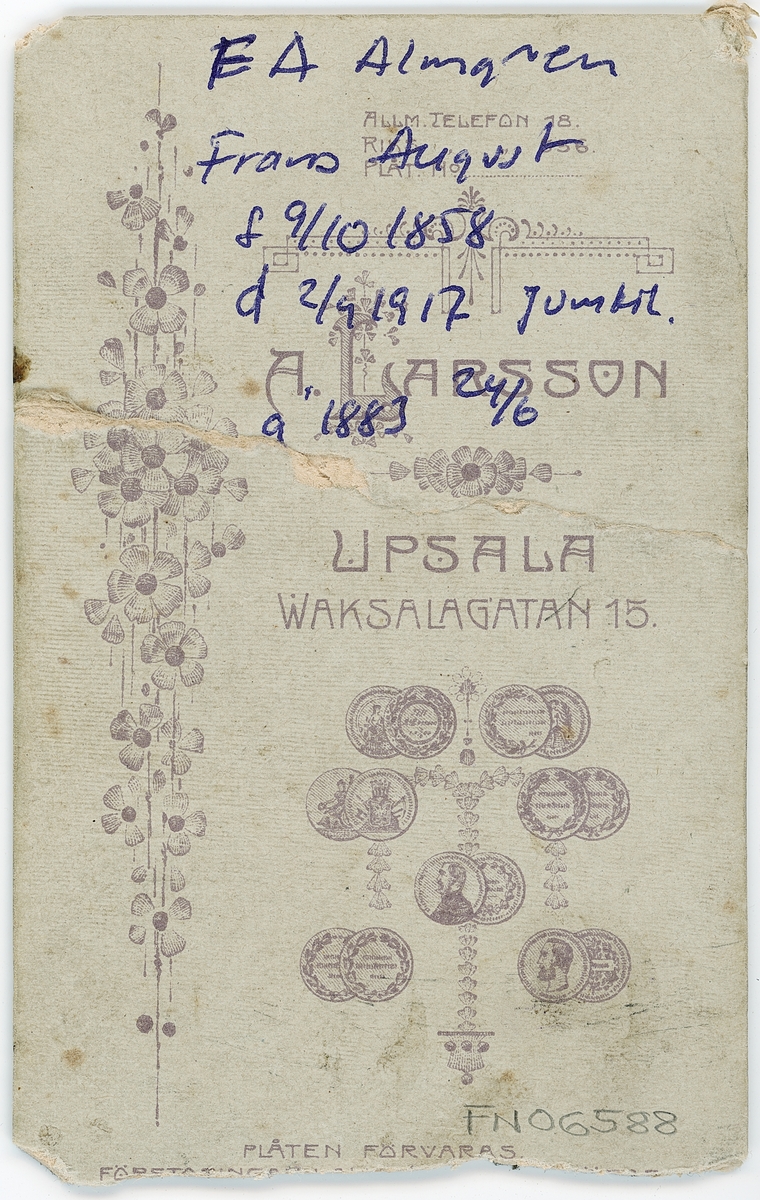 EA Almgren
ALLM. TELEFON 18.
Frans August
PLÅT. No
f 9/10 1858
d 2/9 1917 Jumkil.
A. LARSSON
a 1883 24/6
UPSALA
WAKSALAGATAN 15.
FN06588
PLÅTEN FÖRVARAS.